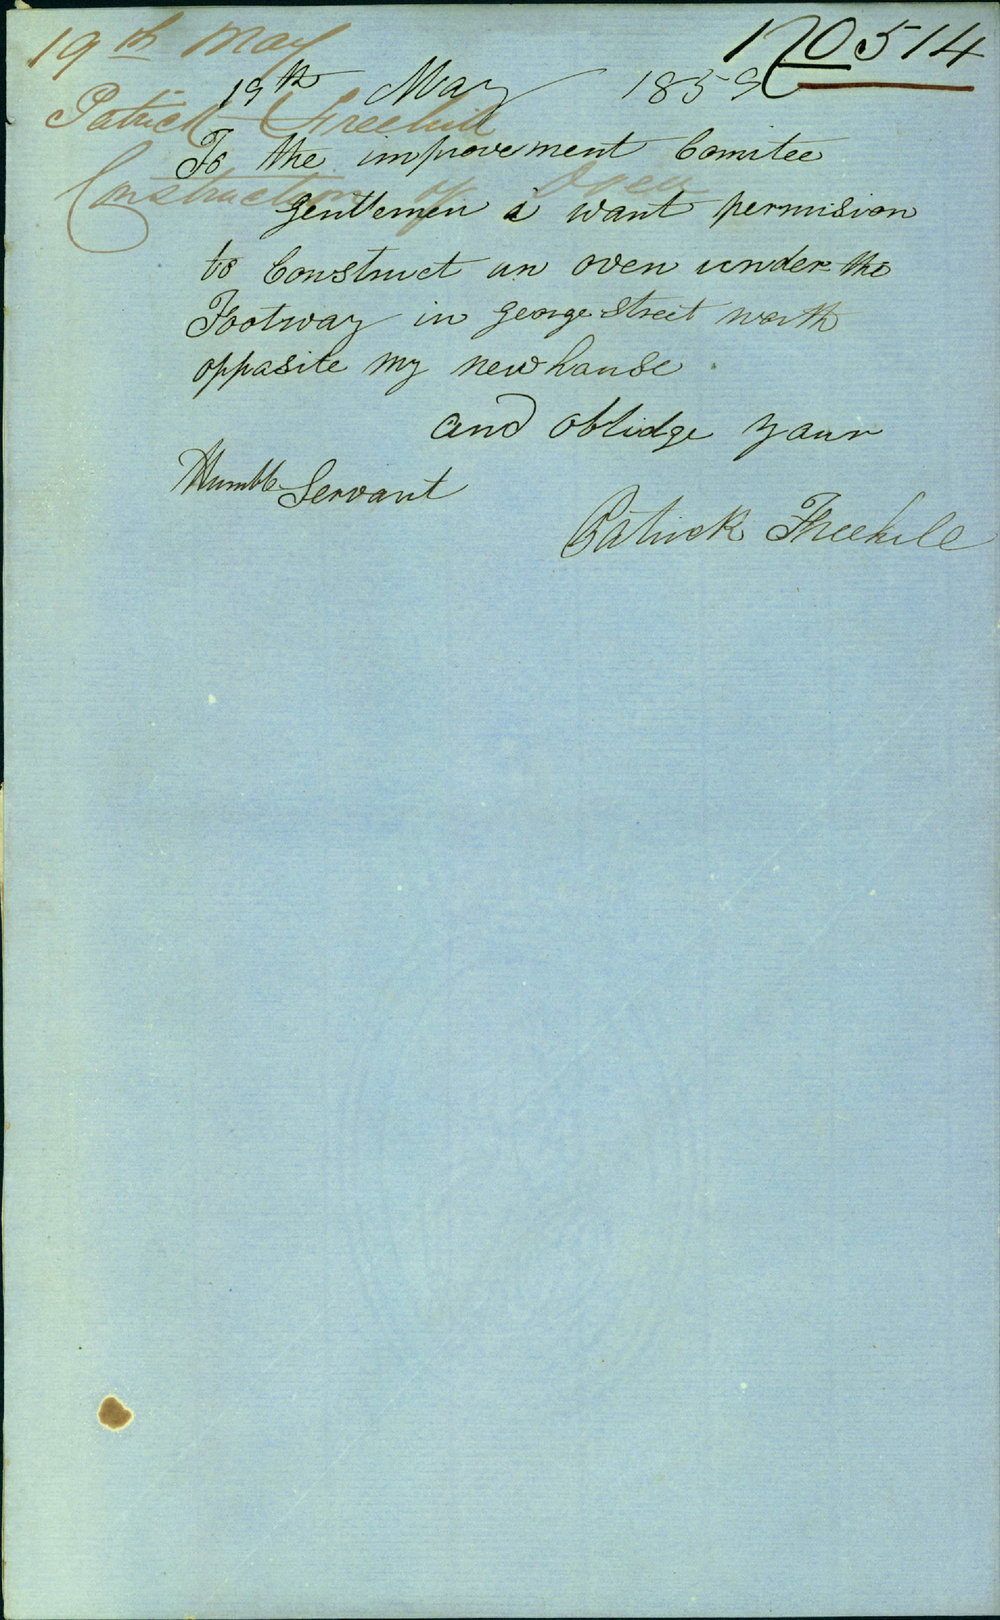 No 514
19th May
Patrick Freehill
Construction of Oven
19th May 1859
To the improvement Comitee
Gentlemen i want permision
to Construct an oven under the
Footway in george Street north
opposite my new house
and oblidge your
Humble Servant
Patrick Freehill